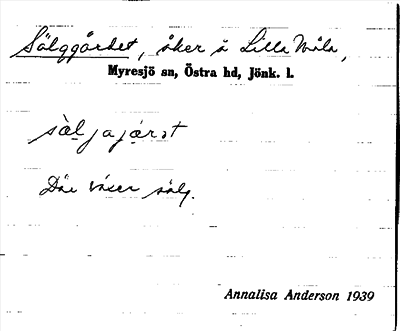 Sälggärdet, åker å Lilla Måla,
Myresjö sn, Östra hd, Jönk. l.
säljajärət
Där växer sälg.
Annalisa Anderson 1939